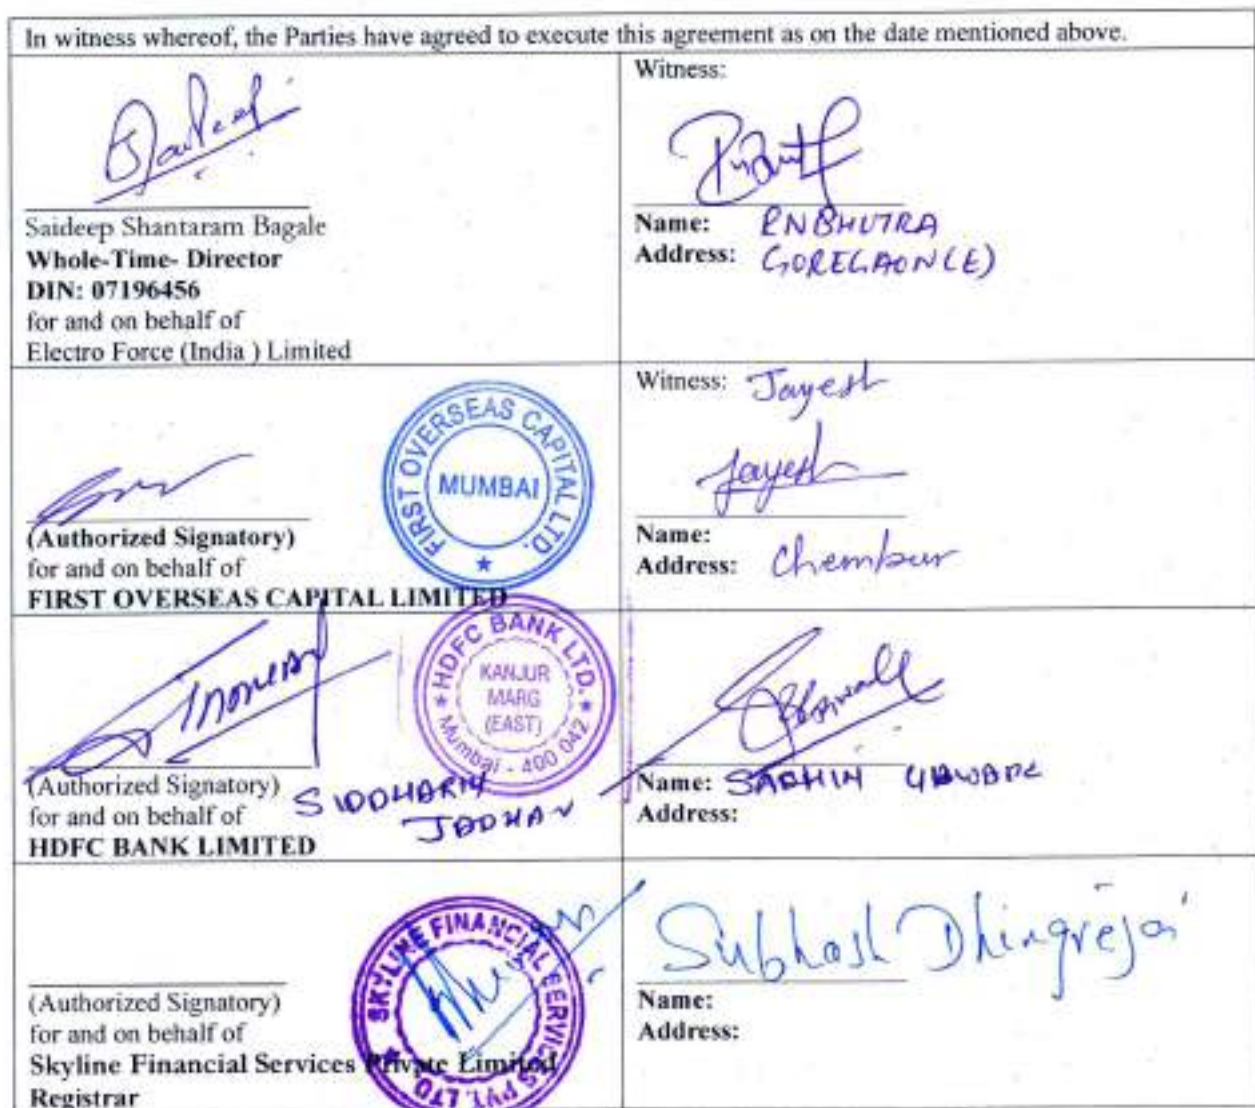 In witness whereof, the Parties have agreed to execute this agreement as on the date mentioned above.
Saideep Shantaram Bagale
Whole-Time- Director
DIN: 07196456
for and on behalf of
Electro Force (India ) Limited
Witness:
Name: PNBHUTRA
Address: GOREGAON(E)
FIRST OVERSEAS CAPITAL LTD.
MUMBAI
(Authorized Signatory)
for and on behalf of
FIRST OVERSEAS CAPITAL LIMITED
Witness: Jayesh
Jayesh
Name:
Address: Chembur
HDFC BANK LTD.
KANJUR
MARG
(EAST)
Mumbai - 400 042
(Authorized Signatory)
for and on behalf of
HDFC BANK LIMITED
SIDDHARTH
JADHAV
Name: SACHIN
Address:
SKYLINE FINANCIAL SERVICES PVT. LTD.
(Authorized Signatory)
for and on behalf of
Skyline Financial Services Private Limited
Registrar
Subhash Dhingreja
Name:
Address: